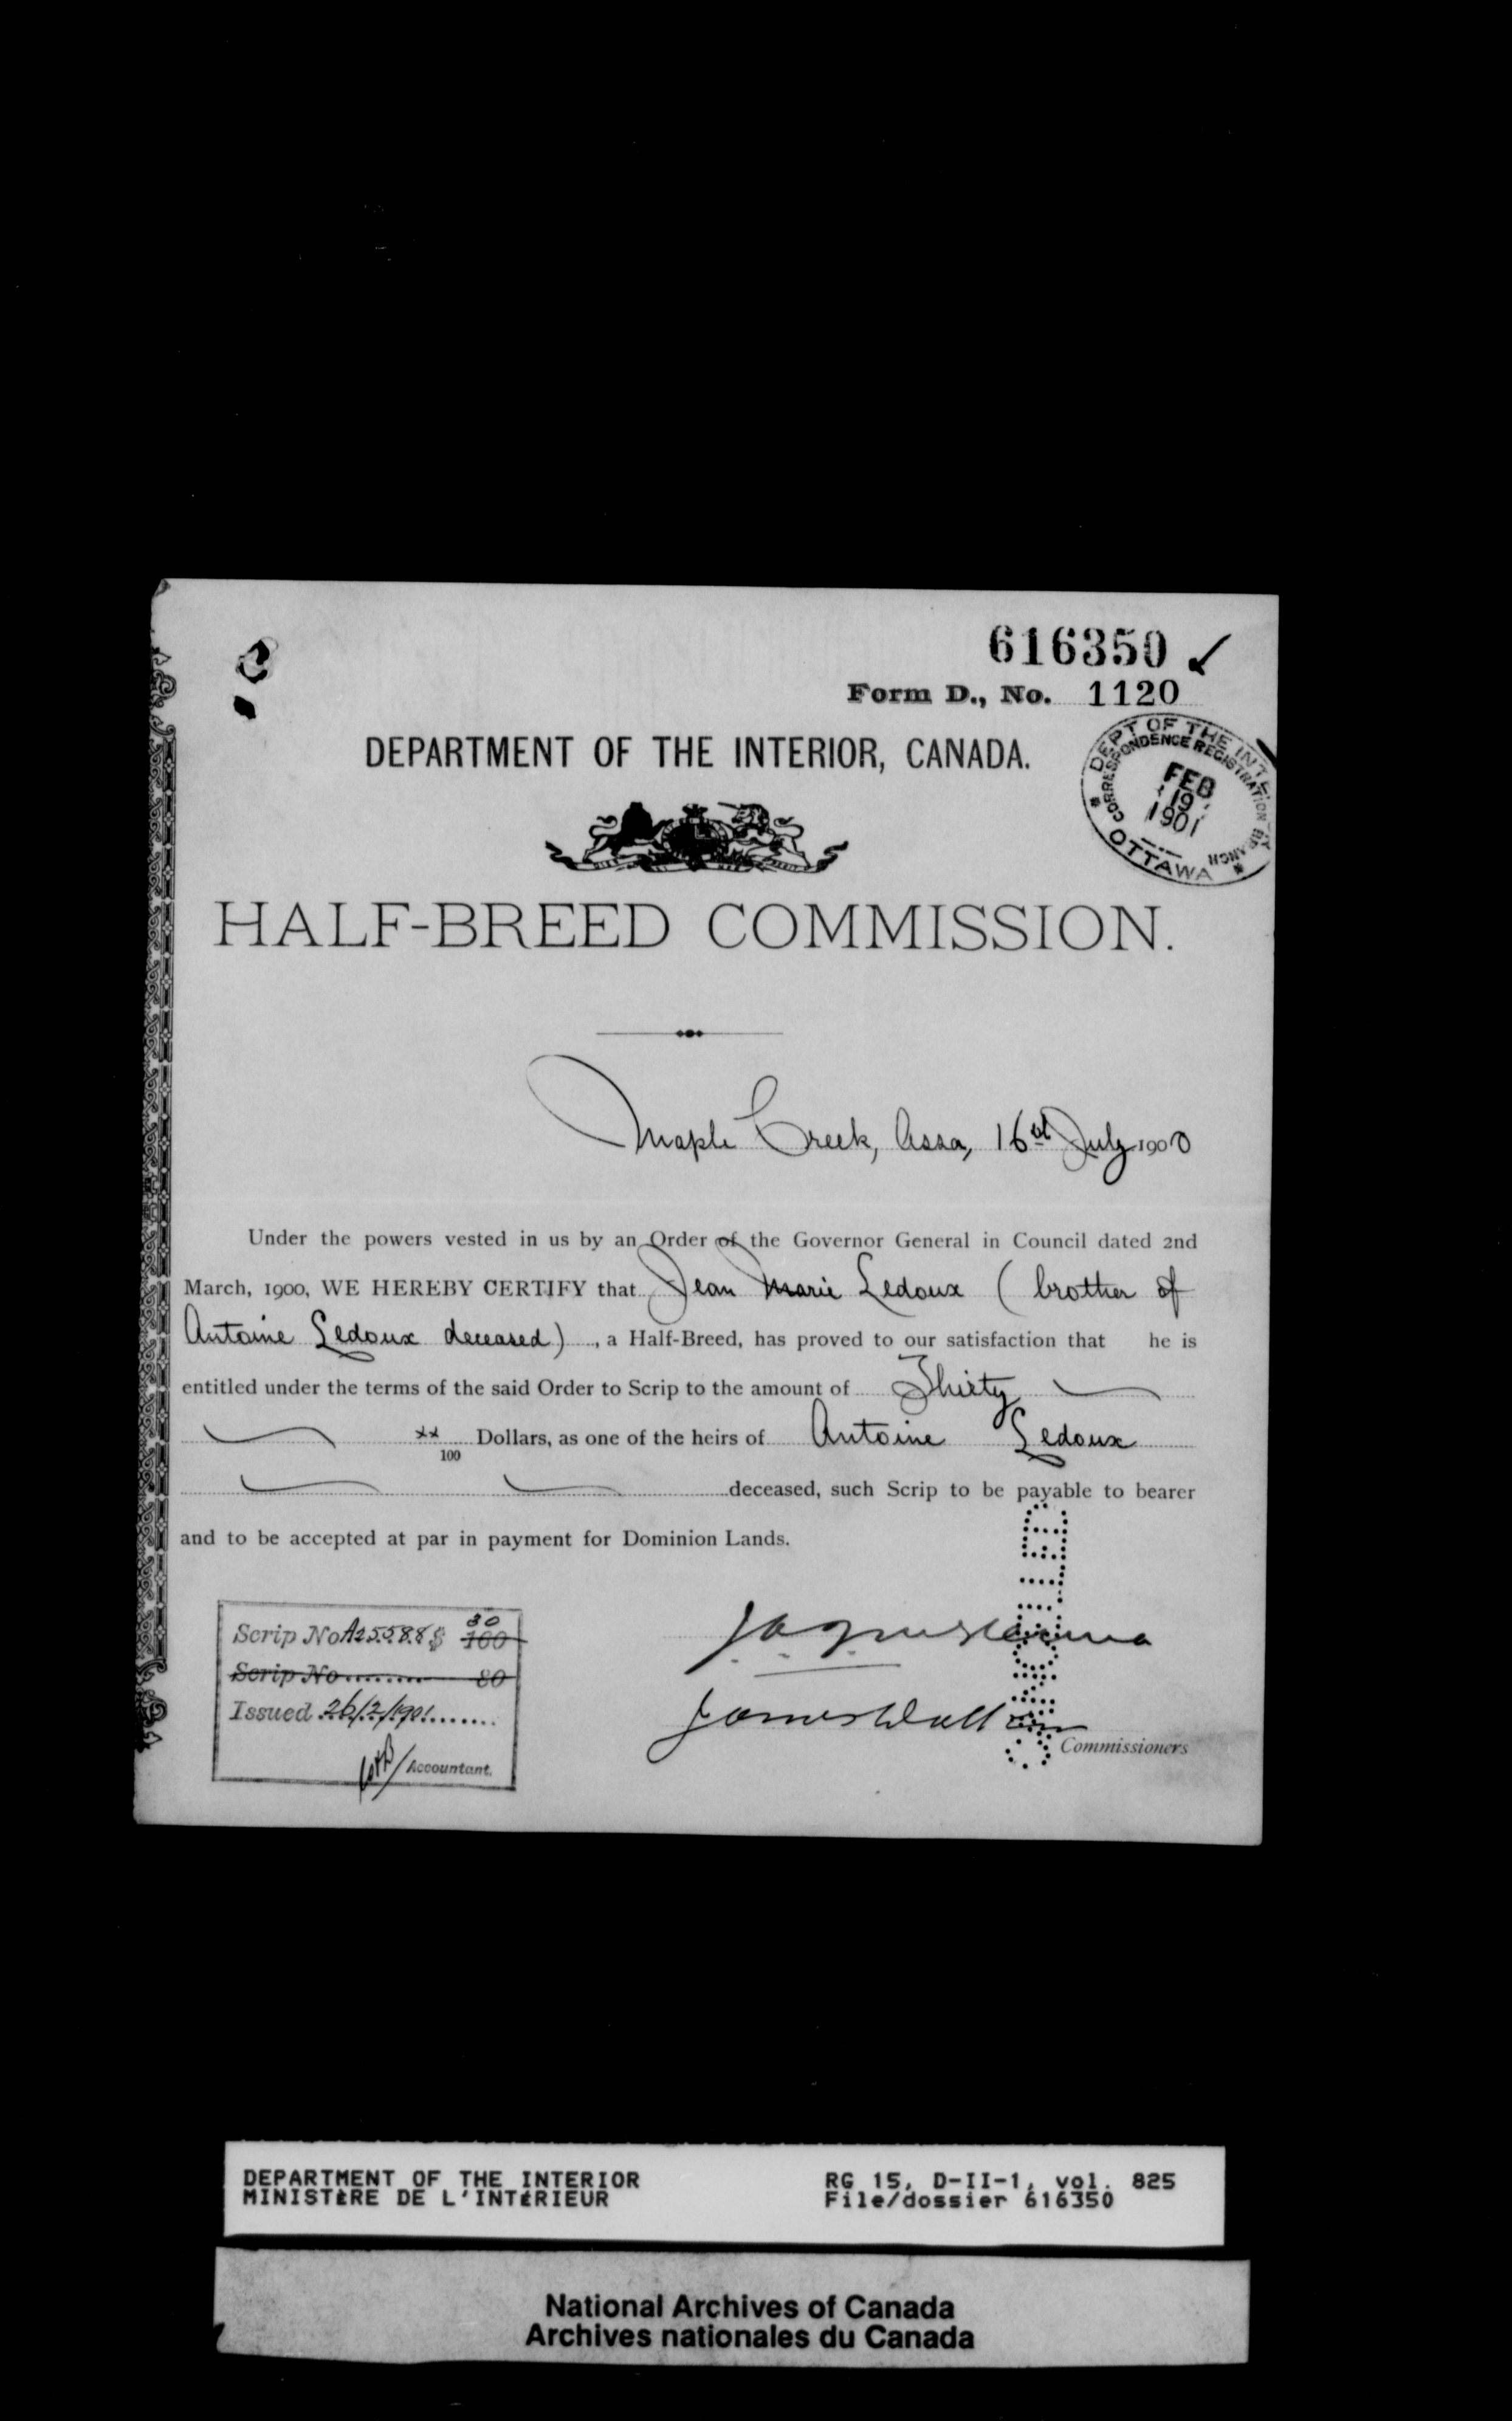 616350 ✓
Form D., No. 1120
DEPARTMENT OF THE INTERIOR, CANADA.
DEPT OF THE INTE
CORRESPONDENCE REGISTRATION BRANCH
FEB
19
1901
OTTAWA
HALF-BREED COMMISSION.
Maple Creek, Assa, 16th July 1900
Under the powers vested in us by an Order of the Governor General in Council dated 2nd
March, 1900, WE HEREBY CERTIFY that Jean Marie Ledoux ( brother of
Antoine Ledoux deceased) , a Half-Breed, has proved to our satisfaction that he is
entitled under the terms of the said Order to Scrip to the amount of Thirty
xx/100 Dollars, as one of the heirs of Antoine Ledoux
deceased, such Scrip to be payable to bearer
and to be accepted at par in payment for Dominion Lands.
CANCELLED
Scrip No A25588 $ 30 160
Scrip No 80
Issued 26/2/1901
Accountant.
James Walker
Commissioners
DEPARTMENT OF THE INTERIOR
MINISTÈRE DE L'INTÉRIEUR
RG 15, D-II-1, vol. 825
File/dossier 616350
National Archives of Canada
Archives nationales du Canada